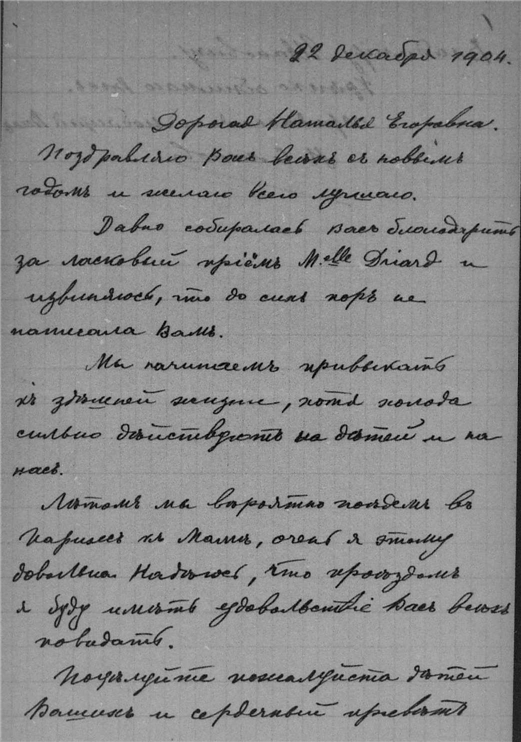 22 декабря 1904.
Дорогая Наталья Егоровна.
Поздравляю Васъ всѣхъ съ новымъ
годомъ и желаю всего лучшаго.
Давно собиралась васъ благодарить
за ласковый пріёмъ Melle Driard и
извиняюсь, что до сихъ поръ не
написала Вамъ.
Мы начинаемъ привыкать
къ здѣшней жизни, хотя холода
сильно дѣйствуютъ на дѣтей и на
насъ.
Лѣтомъ мы вѣроятно поѣдемъ въ
Парижъ къ Мамѣ, очень я этому
довольна. Надѣюсь, что проѣздомъ
я буду имѣть удовольствіе Васъ всѣхъ
повидать.
Поцѣлуйте пожалуйста дѣтей
Вашихъ и сердечный привѣтъ